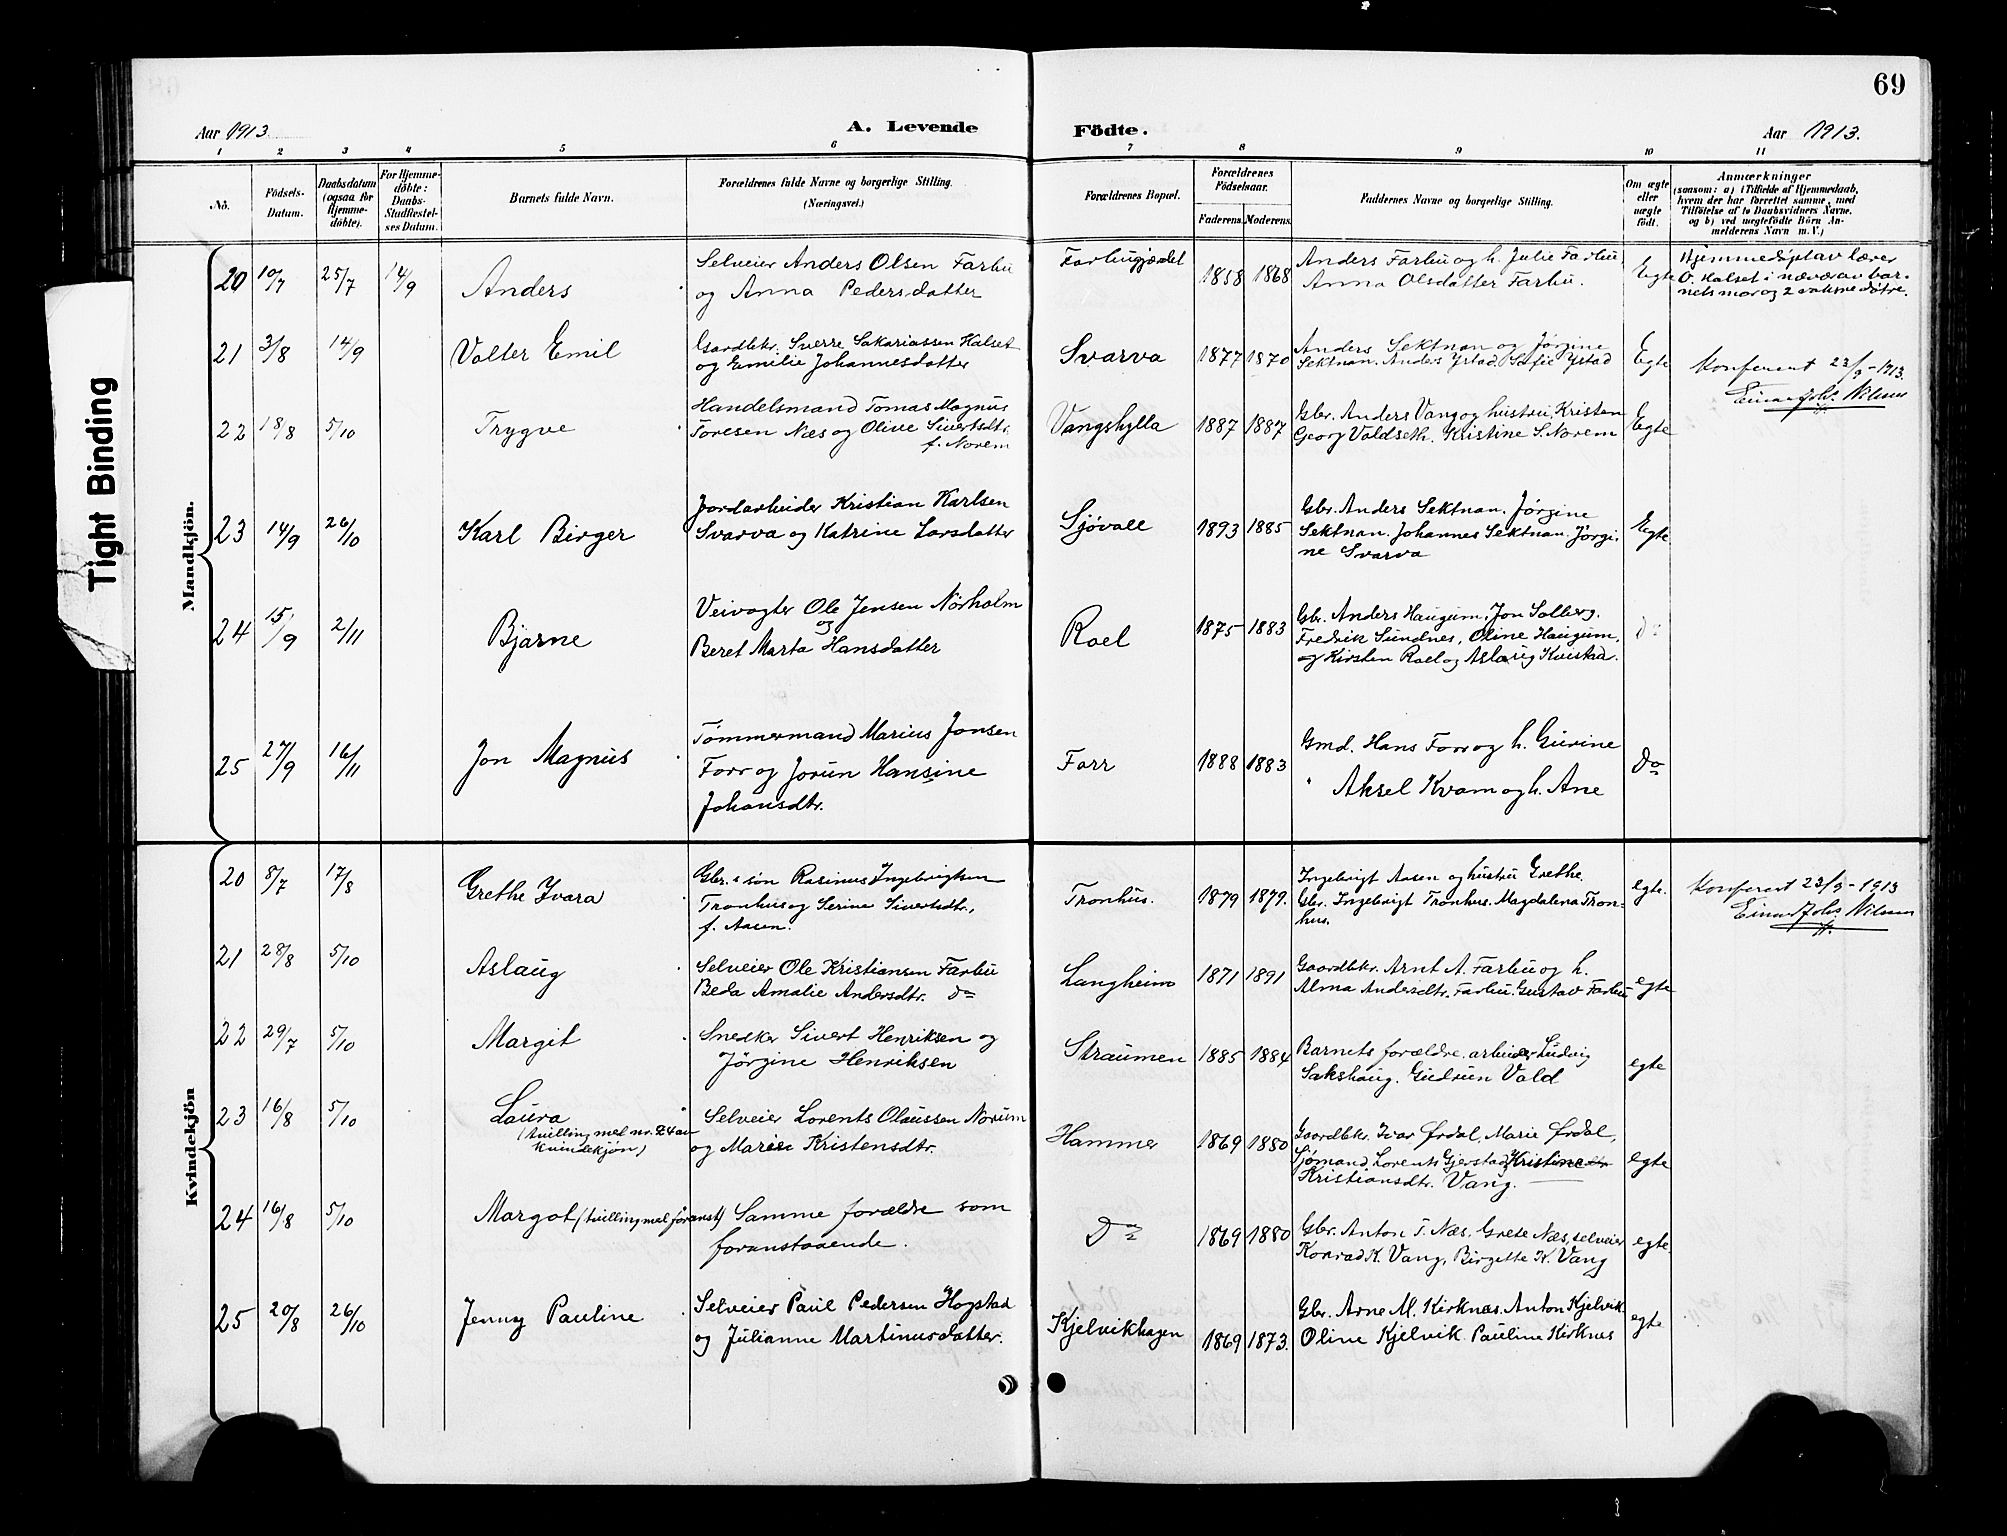 69
Aar 1913.
A. Levende
Födte.
Aar 1913.
1 2 3 4 5 6 7 8 9 10 11
No.
Födsels-
Datum.
Daabsdatum
(ogsaa for
Hjemme-
döbte).
For Hjemme-
döbte:
Daabs-
Stadfæstel-
ses Datum.
Barnets fulde Navn.
Forældrenes fulde Navne og borgerlige Stilling.
(Næringsvei.)
Forældrenes Bopæl.
Forældrenes
Födselsaar.
Faderens. Moderens.
Faddernes Navne og borgerlige Stilling.
Om ægte
eller
uægte
födt.
Anmærkninger
(saasom: a) i Tilfælde af Hjemmedaab,
hvem der har forrettet samme, med
Tilföielse af to Daabsvidners Navne,
og b) ved uegtefödte Börn An-
melderens Navn m. V.)
Tight Binding
Mandkjön.
20 10/7 25/7 14/9 Anders
Selveier Anders Olsen Farbu
og Anna Pedersdatter
Farbugjærdet 1858 1868
Anders Farbu og h. Julie Farbu,
Anna Olsdatter Farbu.
Egte
Hjemmedøpt av lærer
O. Halset i nævær av bar-
nets mor og 2 voksne døtre.
21 3/8 14/9 Valter Emil
Gardbkr. Sverre Sakariassen Halset
og Emilie Johannesdatter
Svarva 1877 1870
Anders Sektnan og Jørgine
Sektnan. Anders Ystad. Sofie Ystad
Egte
Konferert 23/9-1913.
Einar Johs Nilsen
22 18/8 5/10 Trygve
Handelsmand Tomas Magnus
Toresen Næs og Oline Sivertsdtr.
f. Norem
Vangshylla 1887 1887
Gbr. Anders Vang og hustru, Kristen
Georg Valdseth. Kristine S. Norem
Egte
23 14/9 26/10 Karl Birger
Jordarbeider Kristian Karlsen
Svarva og Katrine Larsdatter
Sjøvold 1893 1885
Gbr. Anders Sektnan. Jørgine
Sektnan. Johannes Sektnan. Jørgi-
ne Svarva
Egte
24 15/9 2/11 Bjarne
Veivogter Ole Jensen Norholm
og
Beret Marta Hansdatter
Roel 1875 1883
Gbr. Anders Haugum, Jon Solberg.
Fredrik Sundnes, Oline Haugum,
og Kirsten Roel og Aslaug Kvistad.
do
25 27/9 16/11 Jon Magnus
Tømmermand Marius Jonsen
Forr og Jorun Hansine
Johansdtr.
Forr 1888 1883
Gmd. Hans Forr og h. Gurine
" Aksel Kvam og h. Ane
do
Kvindekjön
20 8/7 17/8 Grethe Ivara
Gbr.s søn Rasinus Ingebrigtsen
Tronhus og Serine Sivertsdtr,
f. Aasen.
Tronhus. 1879 1879.
Ingebrigt Aasen og hustru Grethe.
Gbr. Ingebrigt Tronhus. Magdalena Tron-
hus.
egte.
Konferert 23/9-1913
Einar Johs Nilsen
21 28/8 5/10 Aslaug
Selveier Ole Kristiansen Farbu
Beda Amalie Andersdtr. do
Langheim 1871 1891
Gaardbkr. Arnt A. Farbu og h.
Alma Andersdtr. Farbu. Gustav Farbu
egte
22 29/7 5/10 Margit
Snedker Sivert Henriksen og
Jørgine Henriksen
Straumen 1885 1884
Barnets forældre. arbeider Ludvig
Sakshaug. Gudrun Vold
egte
23 16/8 5/10 Laura
(tvilling med nr. 24 av
kvindekjøn)
Selveier Lorents Olaussen Norum
og Maren Kristensdtr.
Hammer 1869 1880
Gaardbkr. Ivar Ørdal, Marie Ørdal,
Sjømand Lorents Gjerstad, Kristine
Kristiansdtr. Vang.
egte
24 16/8 5/10 Margot (tvilling med foranst)
Samme forældre som
foranstaaende.
Do 1869 1880
Gbr. Anton T. Næs, Grete Næs, selveier
Konrad K. Vang, Birgitte K. Vang
egte.
25 20/8 26/10 Jenny Pauline
Selveier Paul Pedersen Hogstad
og Julianne Martinusdatter.
Kjelvikhagen 1869 1873.
Gbr. Arne M. Kirknes. Anton Kjelvik
Oline Kjelvik. Pauline Kirknes
egte